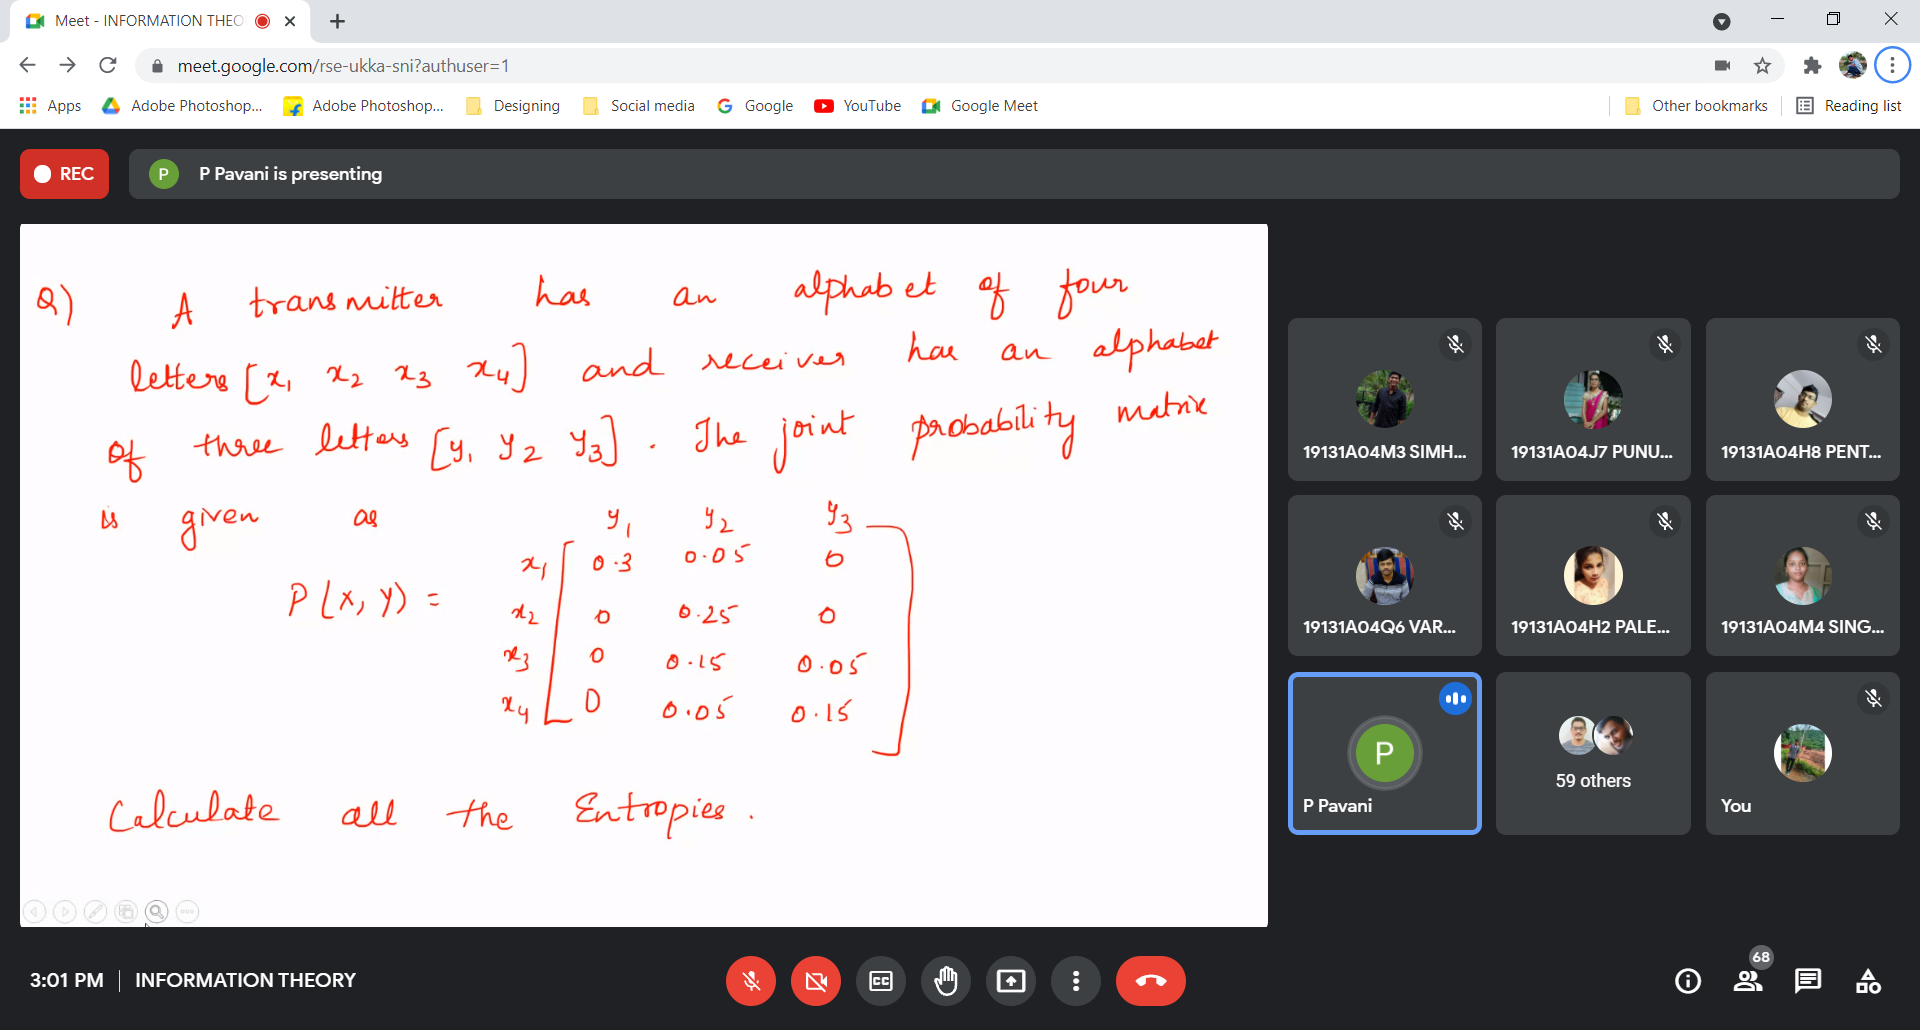 Meet - INFORMATION THEO
meet.google.com/rse-ukka-sni?authuser=1
Apps Adobe Photoshop... Adobe Photoshop... Designing Social media Google YouTube Google Meet Other bookmarks Reading list
REC P P Pavani is presenting
Q) A transmitter has an alphabet of four
letters [x1 x2 x3 x4] and receiver has an alphabet
of three letters [y1 y2 y3]. The joint probability matrix
is given as
y1 y2 y3
x1 0.3 0.05 0
P(X, Y) =
x2 0 0.25 0
x3 0 0.15 0.05
x4 0 0.05 0.15
Calculate all the Entropies.
19131A04M3 SIMH... 19131A04J7 PUNU... 19131A04H8 PENT...
19131A04Q6 VAR... 19131A04H2 PALE... 19131A04M4 SING...
P
P Pavani 59 others You
3:01 PM | INFORMATION THEORY
CC
68